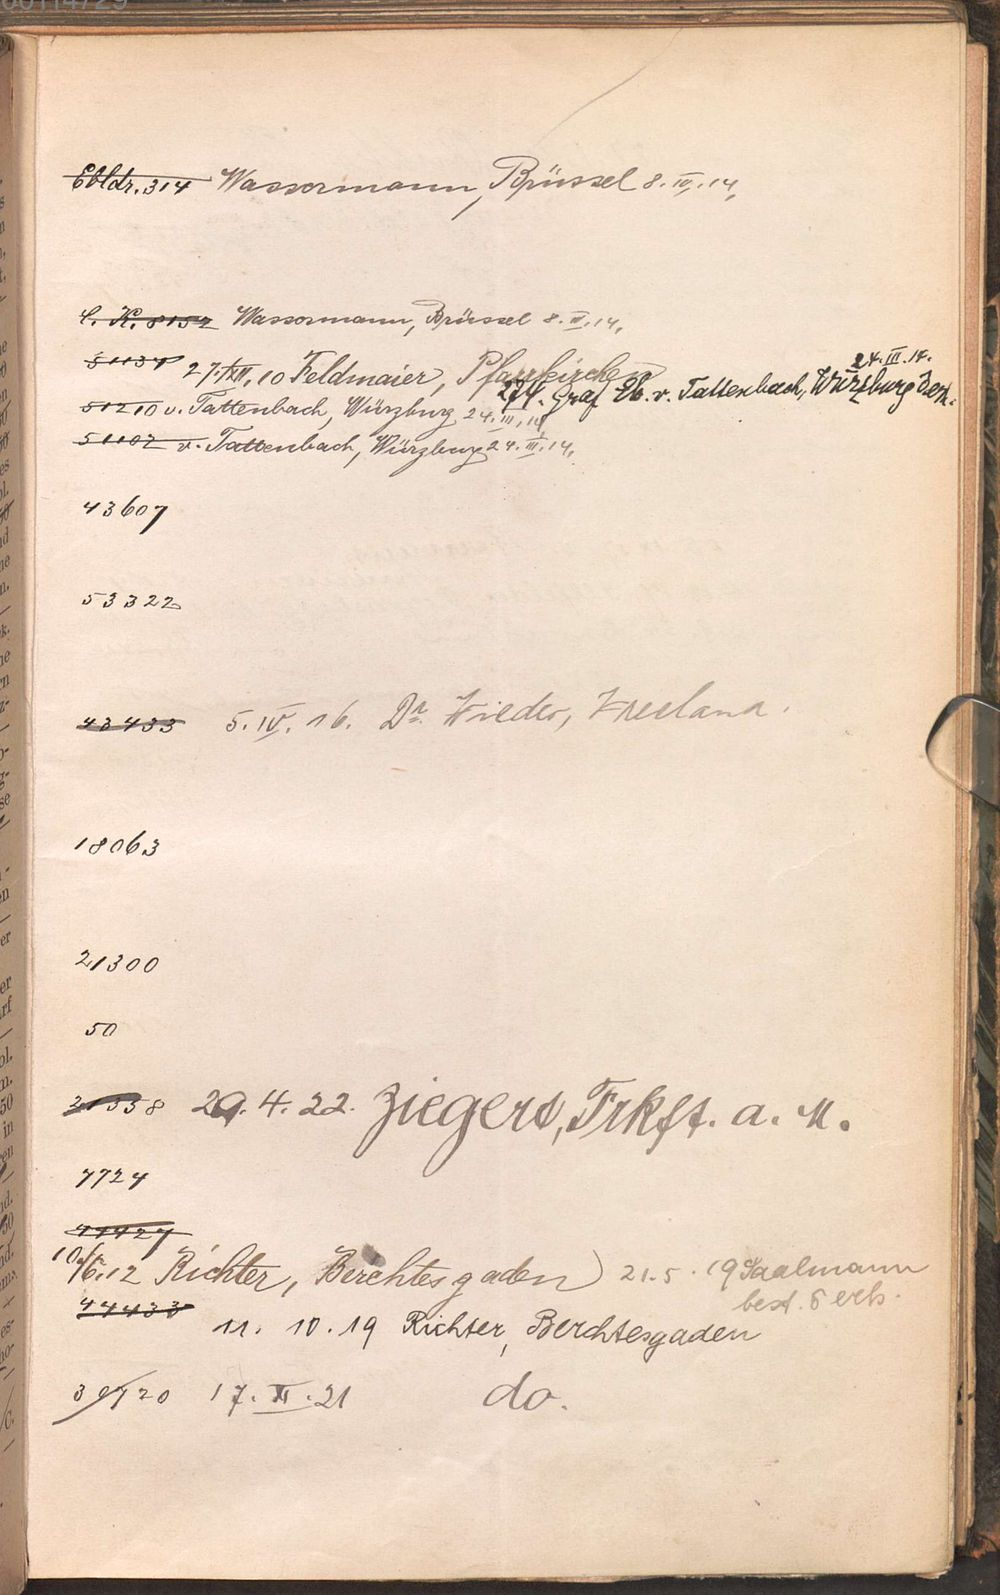 Ebldr. 314 Wassermann, Brüssel 8. IV. 14.
C. K. 8152 Wassermann, Brüssel 8. IV. 14.
51134 27. XII. 10 Feldmaier, Pfarrkirchen
24. III. 14.
Graf Eb. v. Tattenbach, Würzburg
51210 v. Tattenbach, Würzburg 24. III. 14.
51107 v. Tattenbach, Würzburg 24. III. 14.
43607
53322
43433 5. IV. 16. Dr. Wieder,
18063
21300
50
21338 29. 4. 22. Ziegers, Frkft. a. M.
7724
44427
10/6.12 Richter, Berchtesgaden) 21. 5. 19 Saalmann
best. 6 erh.
44433
11. 10. 19 Richter, Berchtesgaden
39720 17. XI. 21 do.